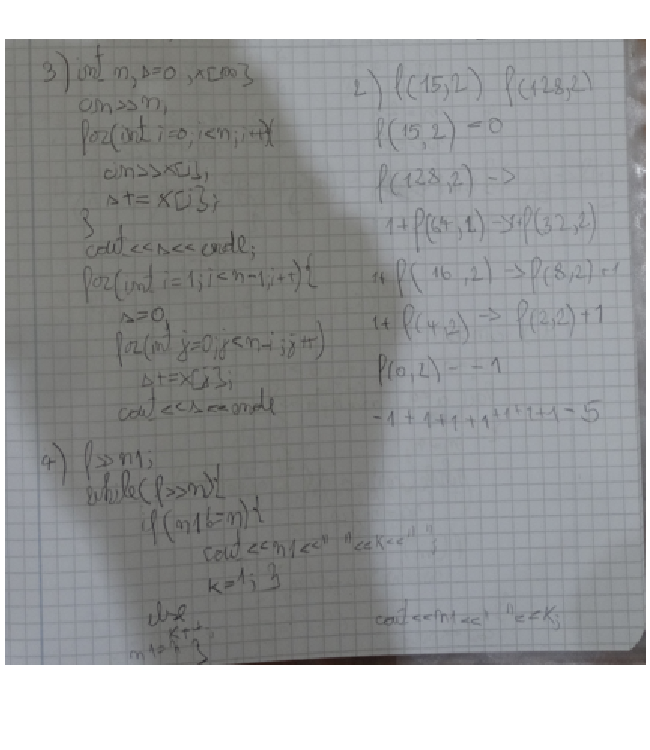 3) int n, s=0, x[100];
cin>>n;
for(int i=0; i<n; i++){
cin>>x[i];
s+=x[i];
}
cout<<s<<endl;
for(int i=1; i<n-1; i++){
s=0;
for(int j=0; j<n-i; j++)
s+=x[j];
cout<<s<<endl
4) f>>n1;
while(f>>n){
if(n1!=n){
cout<<n1<<" "<<k<<" ";
k=1; }
else
k++;
n1=n }
cout<<n1<<" "<<k;
2) f(15,2) f(128,2)
f(15,2)=0
f(128,2) ->
1+f(64,2) -> 1+f(32,2)
1+f(16,2) -> f(8,2)+1
1+f(4,2) -> f(2,2)+1
f(0,2)=-1
-1+1+1+1+1+1+1=5